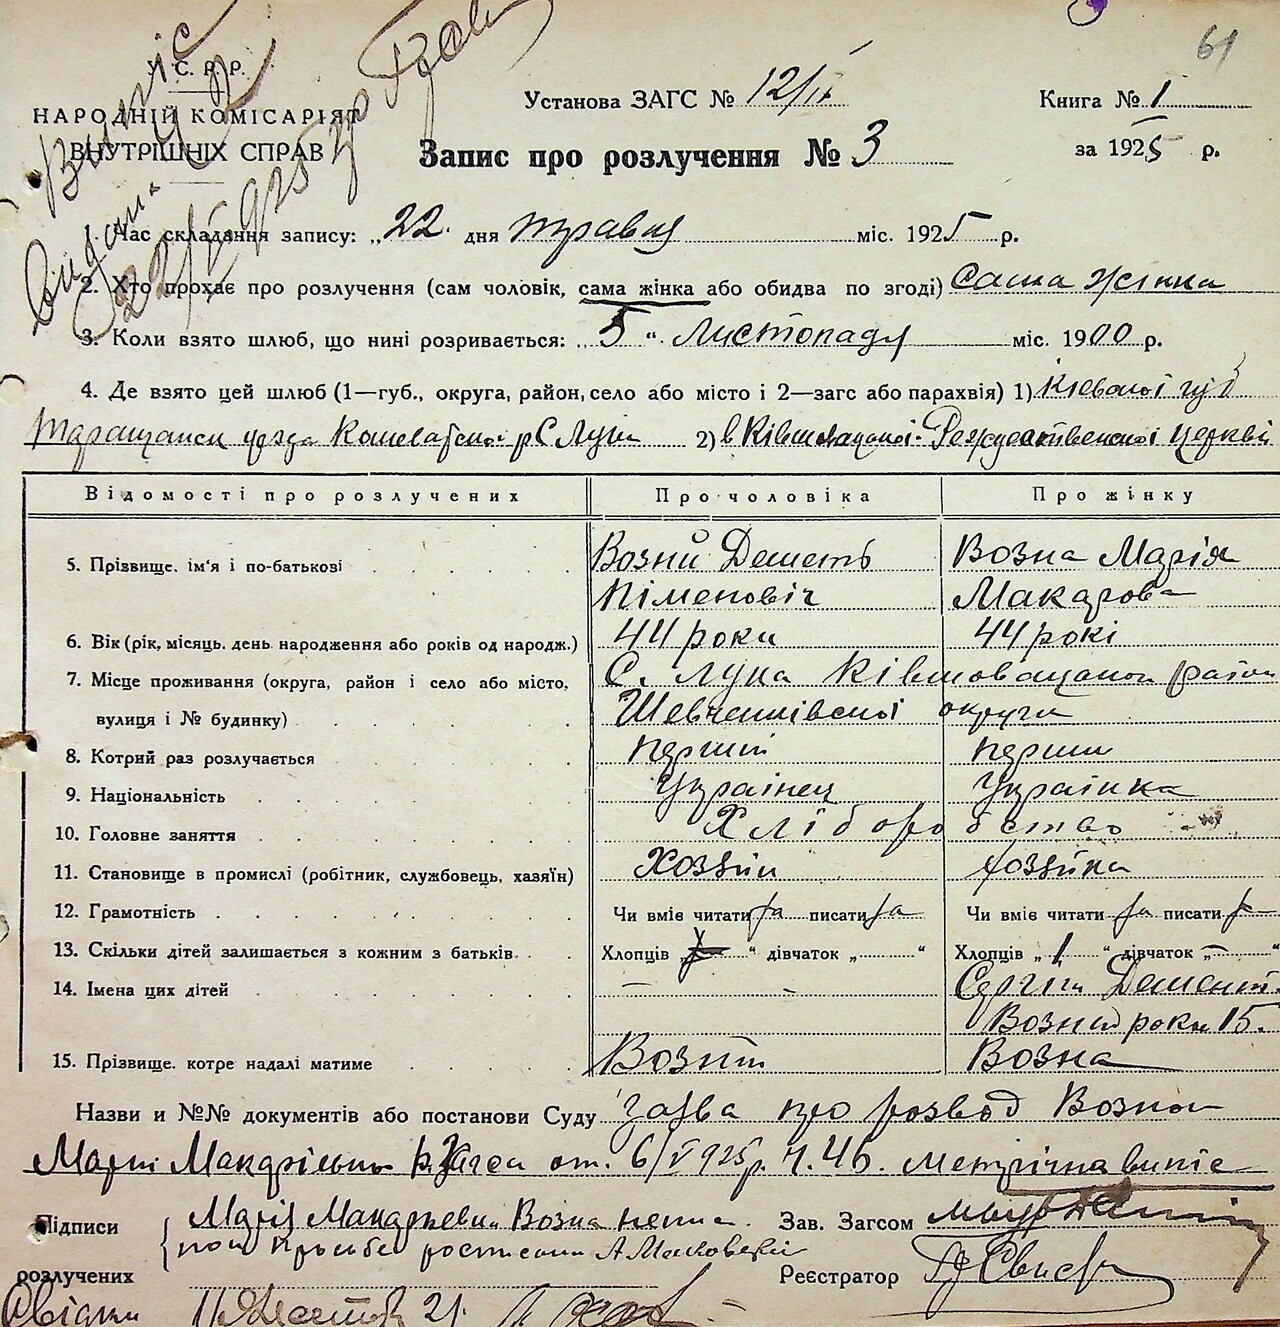 61
Випіс
видан
22/V 925 р.
У. С. Р. Р.
НАРОДНІЙ КОМІСАРІЯТ
ВНУТРІШНІХ СПРАВ
Установа ЗАГС № 12/ІХ
Книга № 1
Запис про розлучення № 3
за 1925 р.
1. Час складання запису: „22" дня травня міс. 1925 р.
2. Хто прохає про розлучення (сам чоловік, сама жінка або обидва по згоді) Сама жінка
3. Коли взято шлюб, що нині розривається: „5" Листопада міс. 1900 р.
4. Де взято цей шлюб (1—губ., округа, район, село або місто і 2—загс або парахвія) 1) Київської губ
Таращанськ уезда р С Лука 2) в Рождественської церкві
Відомості про розлучених Про чоловіка Про жінку
5. Прізвище, ім'я і по-батькові Возний Деметь Возна Марія
Піменовіч Макарова
6. Вік (рік, місяць, день народження або років од народж.) 44 роки 44 рокі
7. Місце проживання (округа, район і село або місто, С. Лука Ківшоватської район
вулиця і № будинку) Шевченківської округи
8. Котрий раз розлучається перший перши
9. Національність Українец Українка
10. Головне заняття Хліборобство
11. Становище в промислі (робітник, службовець, хазяїн) Хозяїн хозяїка
12. Грамотність Чи вміє читати да писати да Чи вміє читати да писати
13. Скільки дітей залишається з кожним з батьків Хлопців „ " дівчаток „ " Хлопців „1" дівчаток „–"
14. Імена цих дітей – – Сергій Демент.
Возний роки 15.
15. Прізвище, котре надалі матиме Возний Возна
Назви и №№ документів або постанови Суду Заява про розвод Возной
Марії от. 6/V 925 р. ч. 46. метрічна випіс
Підписи Марія Макарьевна Возна непис. Зав. Загсом
розлучених по прозьбе росписался А Маковецкий Реєстратор
Свідки